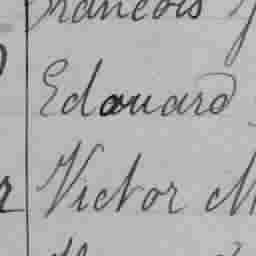 Francois
Edouard
Victor M